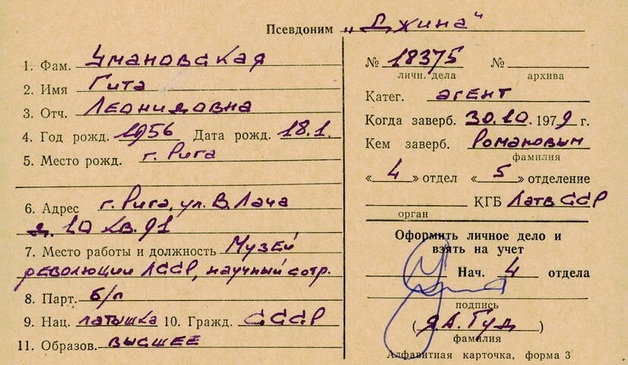 Псевдоним „Джина“
1. Фам. Умановская
2. Имя Гита
3. Отч. Леонидовна
4. Год рожд. 1956 Дата рожд. 18.1.
5. Место рожд. г. Рига
6. Адрес г. Рига, ул. В. Лача
д. 10 кв. 91
7. Место работы и должность Музей
революции ЛССР, научный сотр.
8. Парт. б/п
9. Нац. латышка 10. Гражд. СССР
11. Образов. высшее
№ 18375 №
личн. дела архива
Катег. агент
Когда заверб. 30.10.1979 г.
Кем заверб. Романовым
фамилия
«4» отдел «5» отделение
КГБ Латв ССР
орган
Оформить личное дело и
взять на учет
Нач. 4 отдела
подпись
(Я.А. Гуд)
фамилия
Алфавитная карточка, форма 3